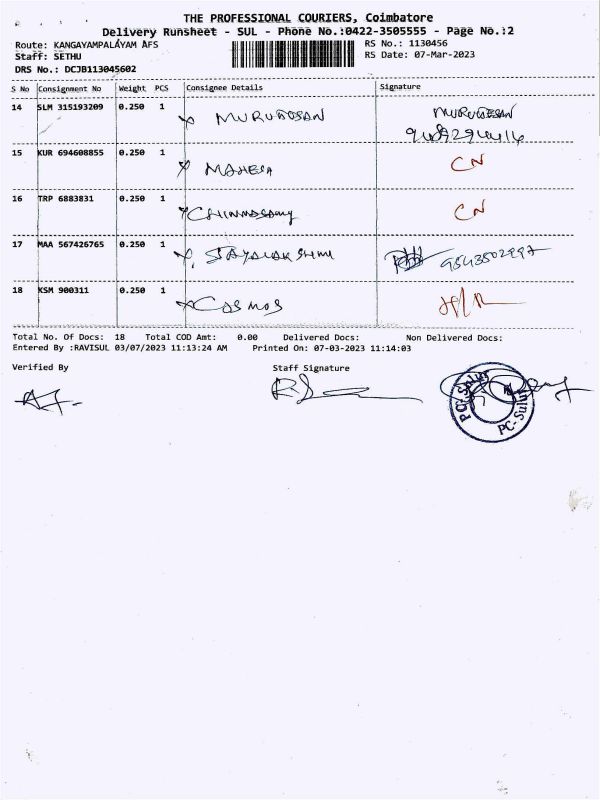 THE PROFESSIONAL COURIERS, Coimbatore
Delivery Runsheet - SUL - Phone No.:0422-3505555 - Page No.:2
Route: KANGAYAMPALAYAM AFS
RS No.: 1130456
Staff: SETHU
RS Date: 07-Mar-2023
DRS No.: DCJB113045602
S No Consignment No Weight PCS Consignee Details Signature
14 SLM 315193209 0.250 1 MURUGESAN MURUGESAN
15 KUR 694608855 0.250 1 MAHESH CN
16 TRP 6883831 0.250 1 CN
17 MAA 567426765 0.250 1 9543502997
18 KSM 900311 0.250 1 COSMOS
Total No. Of Docs: 18 Total COD Amt: 0.00 Delivered Docs: Non Delivered Docs:
Entered By :RAVISUL 03/07/2023 11:13:24 AM Printed On: 07-03-2023 11:14:03
Verified By Staff Signature
PC-Sulur
PC-Sulur